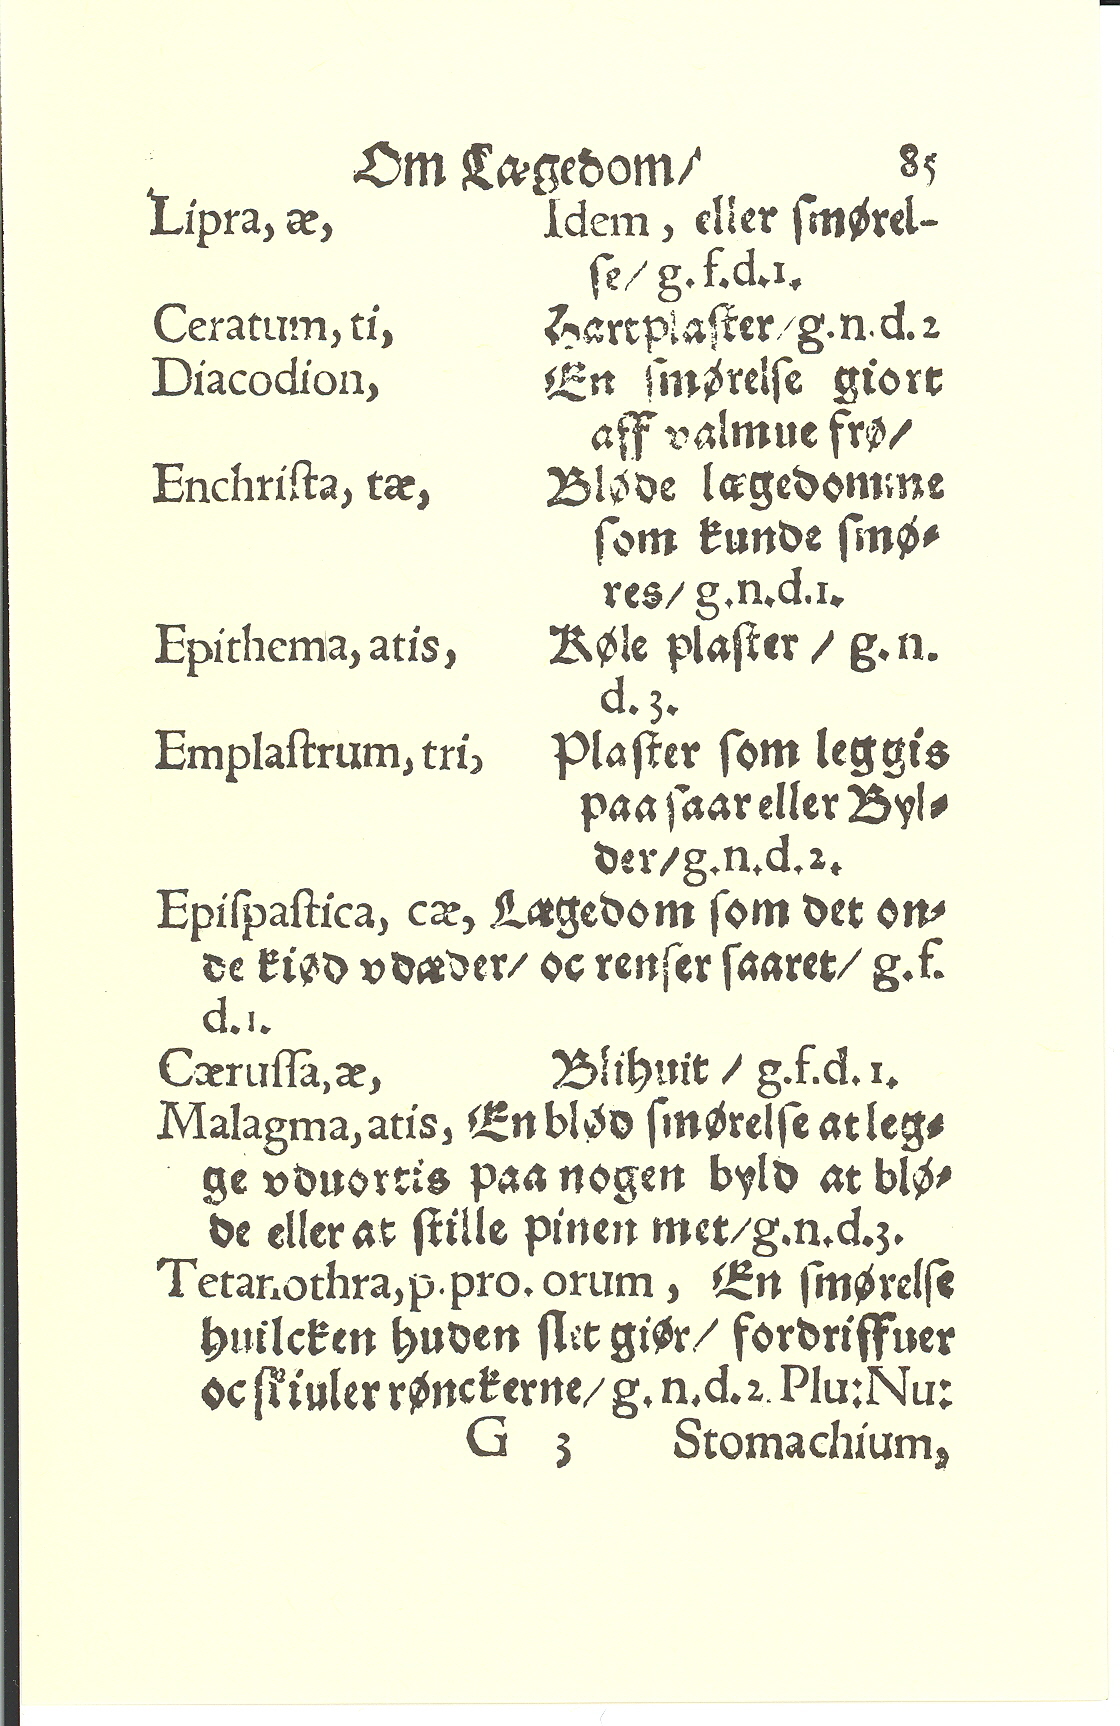 Om Lægedom/ 85
Lipra, æ, Idem, eller ſmørel-
ſe/ g.f.d.1.
Ceratum, ti, Hartplaſter/g.n.d.2
Diacodion, En ſmørelſe giort
aff valmue frø/
Enchriſta, tæ, Bløde lægedomme
ſom kunde ſmø⸗
res/ g.n.d.1.
Epithema, atis, Køle plaſter / g.n.
d.3.
Emplaſtrum, tri, Plaſter ſom leggis
paa ſaar eller Byl⸗
der/g.n.d.2.
Epiſpaſtica, cæ, Lægedom ſom det on⸗
de kiød vdæder/ oc renſer ſaaret/ g.f.
d.1.
Cæruſſa, æ, Blihuit / g.f.d.1.
Malagma, atis, En blød ſmørelſe at leg⸗
ge vduortis paa nogen byld at blø⸗
de eller at ſtille pinen met/g.n.d.3.
Tetanothra, p.pro. orum, En ſmørelſe
huilcken huden ſlet giør/ fordriffuer
oc ſkiuler rønckerne/ g.n.d.2. Plu:Nu:
G 3 Stomachium,